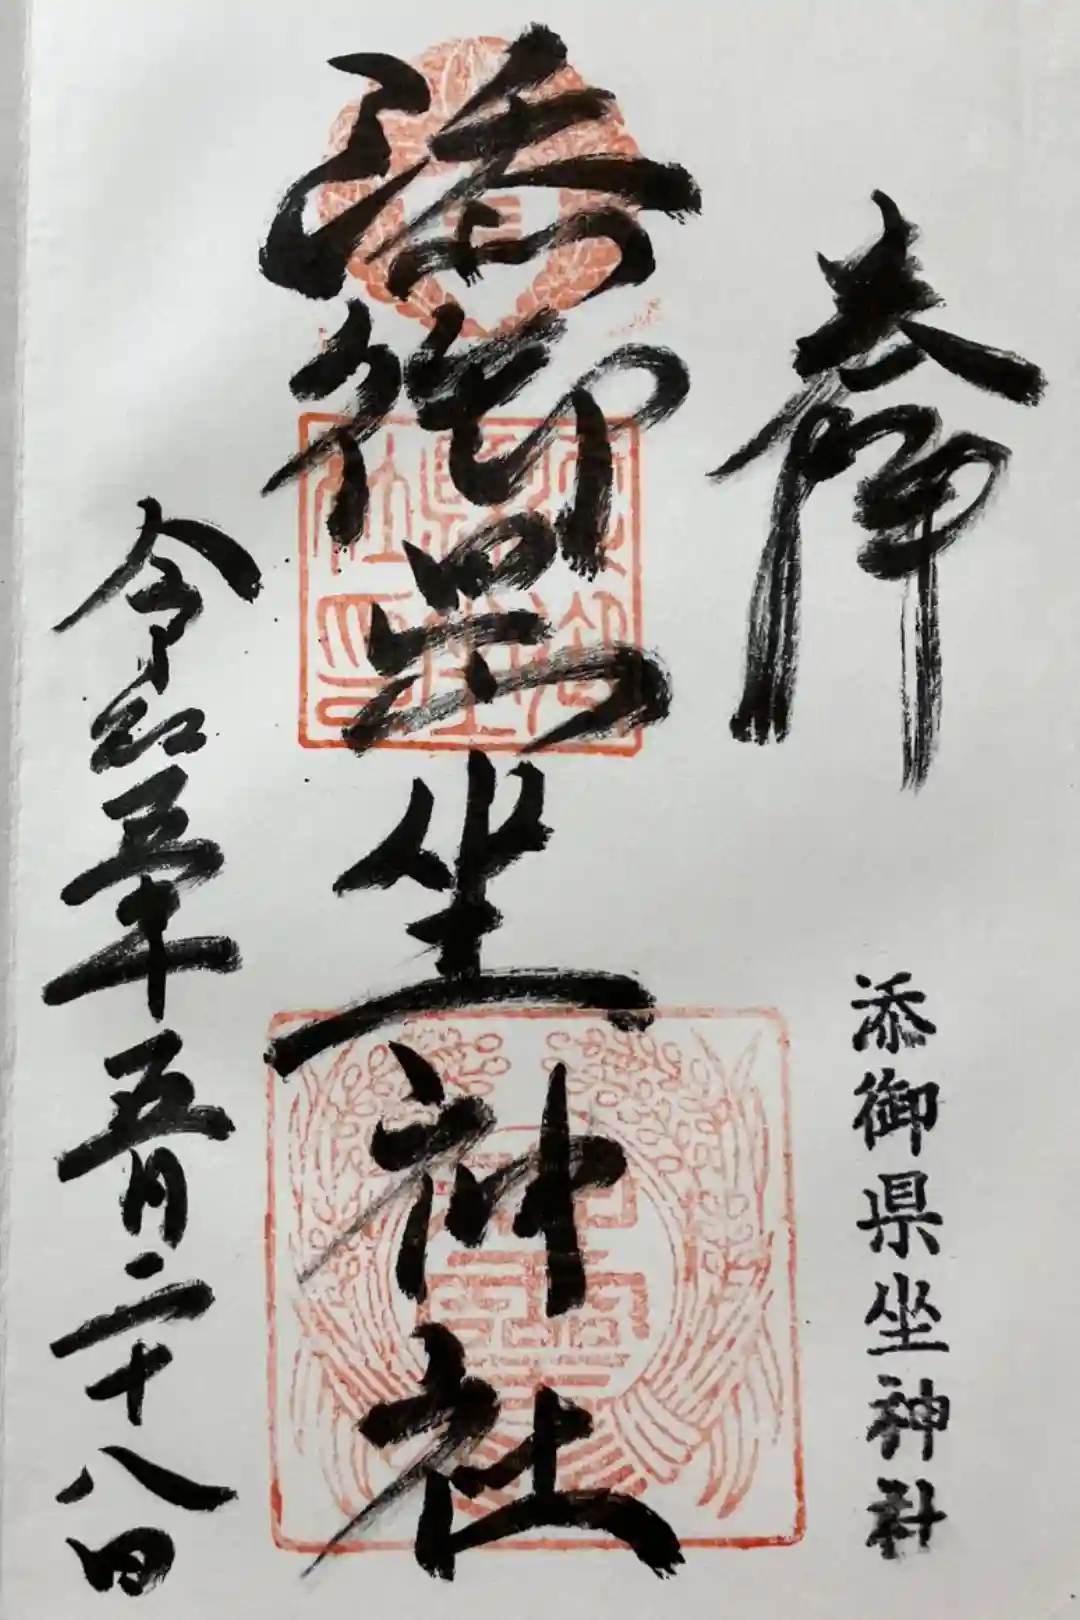 奉拝
添御県坐神社
添御県坐神社
令和五年五月二十八日